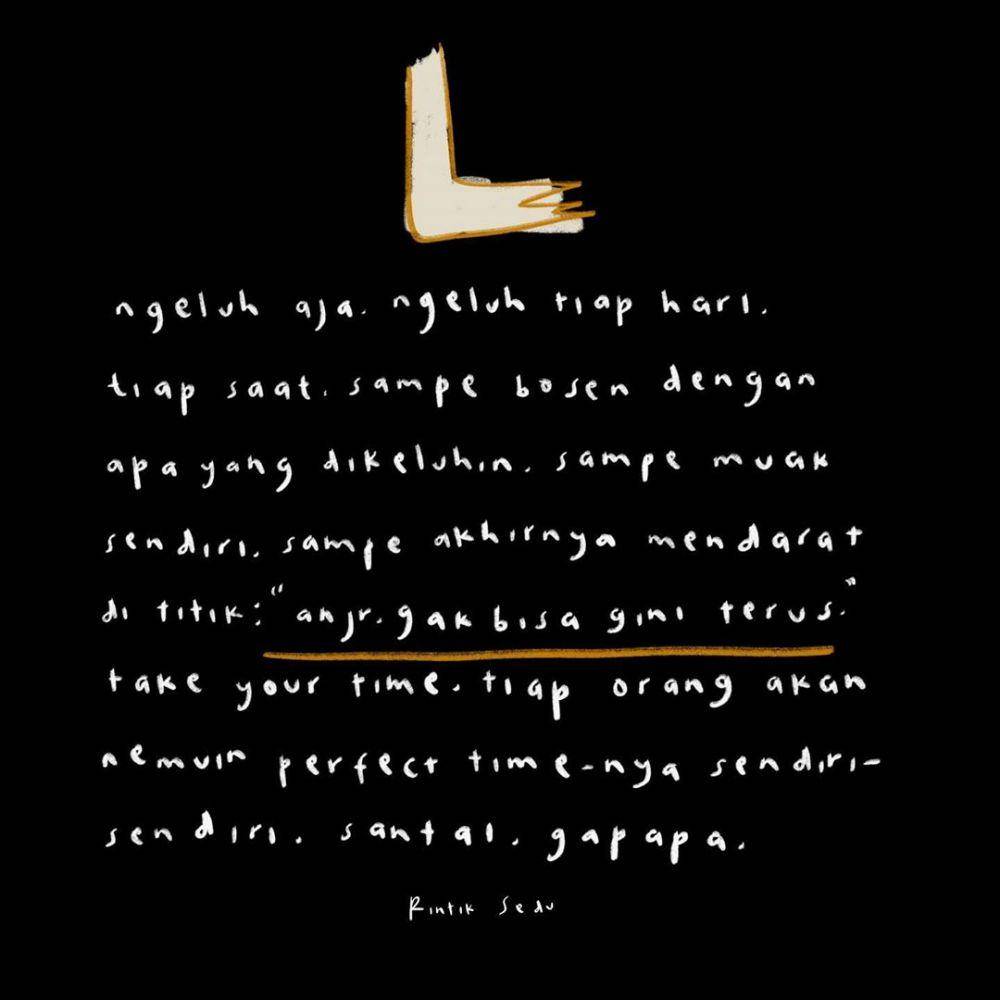 ngeluh aja. ngeluh tiap hari.
tiap saat. sampe bosen dengan
apa yang dikeluhin. sampe muak
sendiri. sampe akhirnya mendarat
di titik: "anjr. gak bisa gini terus."
take your time. tiap orang akan
nemuin perfect time-nya sendiri-
sendiri. santai. gapapa.
Rintik Sedu